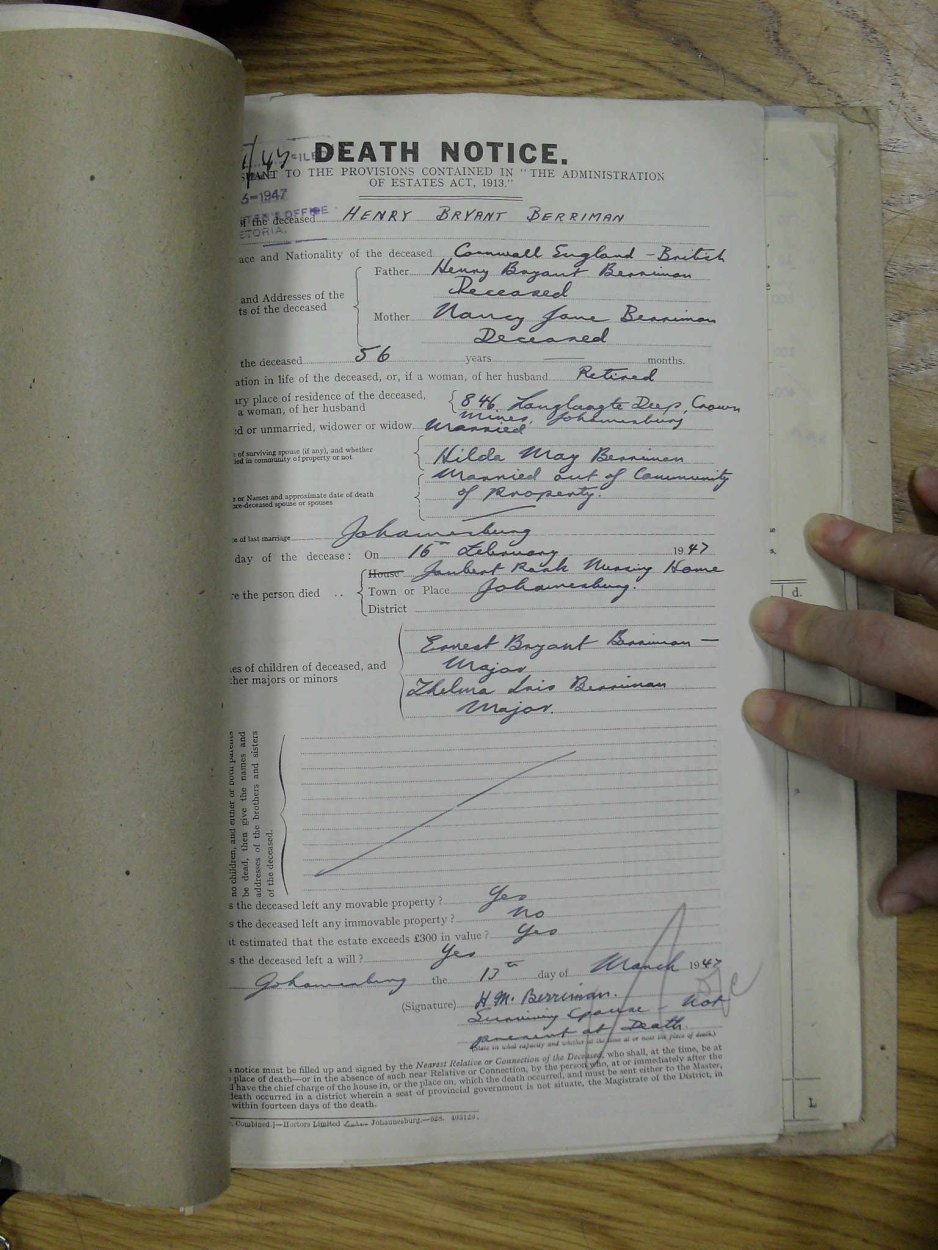 DEATH NOTICE.
TO THE PROVISIONS CONTAINED IN "THE ADMINISTRATION
OF ESTATES ACT, 1913."
-1947
the deceased HENRY BRYANT BERRIMAN
ace and Nationality of the deceased Cornwall England - British
Father Henry Bryant Berriman
Deceased
and Addresses of the
ts of the deceased
Mother Nancy Jane Berriman
Deceased
the deceased 56 years months.
ation in life of the deceased, or, if a woman, of her husband Retired
ary place of residence of the deceased,
a woman, of her husband
846 Langlaagte Deep, Crown
Mines, Johannesburg
d or unmarried, widower or widow Married
of surviving spouse (if any), and whether
ied in community of property or not
Hilda May Berriman
Married out of Community
of Property.
e or Names and approximate date of death
re-deceased spouse or spouses
e of last marriage Johannesburg
day of the decease: On 16th February 1947
re the person died ..
House Joubert Park Nursing Home
Town or Place Johannesburg.
District
es of children of deceased, and
her majors or minors
Ernest Bryant Berriman -
Major
Thelma Lois Berriman
Major.
no children, and either or both parents
be dead, then give the names and
addresses of the brothers and sisters
of the deceased.
s the deceased left any movable property? Yes
s the deceased left any immovable property? No
it estimated that the estate exceeds £300 in value? Yes
s the deceased left a will? Yes
Johannesburg the 13th day of March 1947
(Signature) H.M. Berriman.
Surviving Spouse - not
present at Death.
(State in what capacity and whether at the time at or near the place of death.)
notice must be filled up and signed by the Nearest Relative or Connection of the Deceased, who shall, at the time, be at
place of death—or in the absence of such near Relative or Connection, by the person who, at or immediately after the
have the chief charge of the house in, or the place on, which the death occurred, and must be sent either to the Master,
death occurred in a district wherein a seat of provincial government is not situate, the Magistrate of the District, in
within fourteen days of the death.
Combined.]—Hortors Limited Johannesburg.—628. 403120.
d.
L